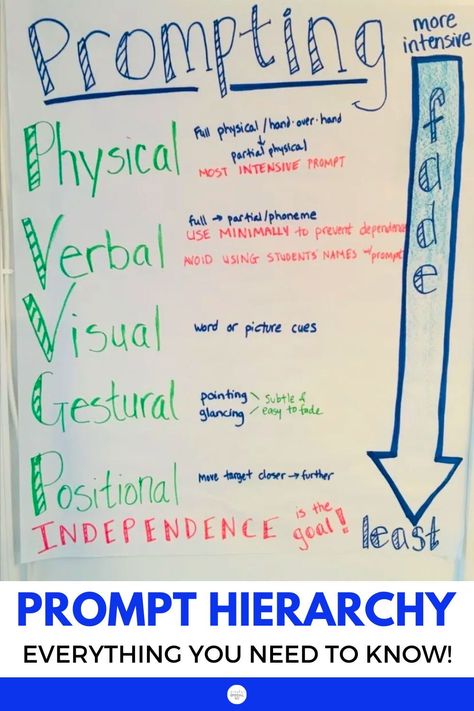 Prompting
more
intensive
fade
Physical
Full physical/hand-over-hand
↓
partial physical
MOST INTENSIVE PROMPT
Verbal
full → partial/phoneme
USE MINIMALLY to prevent dependence
AVOID USING STUDENTS' NAMES w/prompt
Visual
word or picture cues
Gestural
pointing
glancing
subtle &
easy to fade
Positional
move target closer → further
INDEPENDENCE is the
goal!
least
PROMPT HIERARCHY
EVERYTHING YOU NEED TO KNOW!